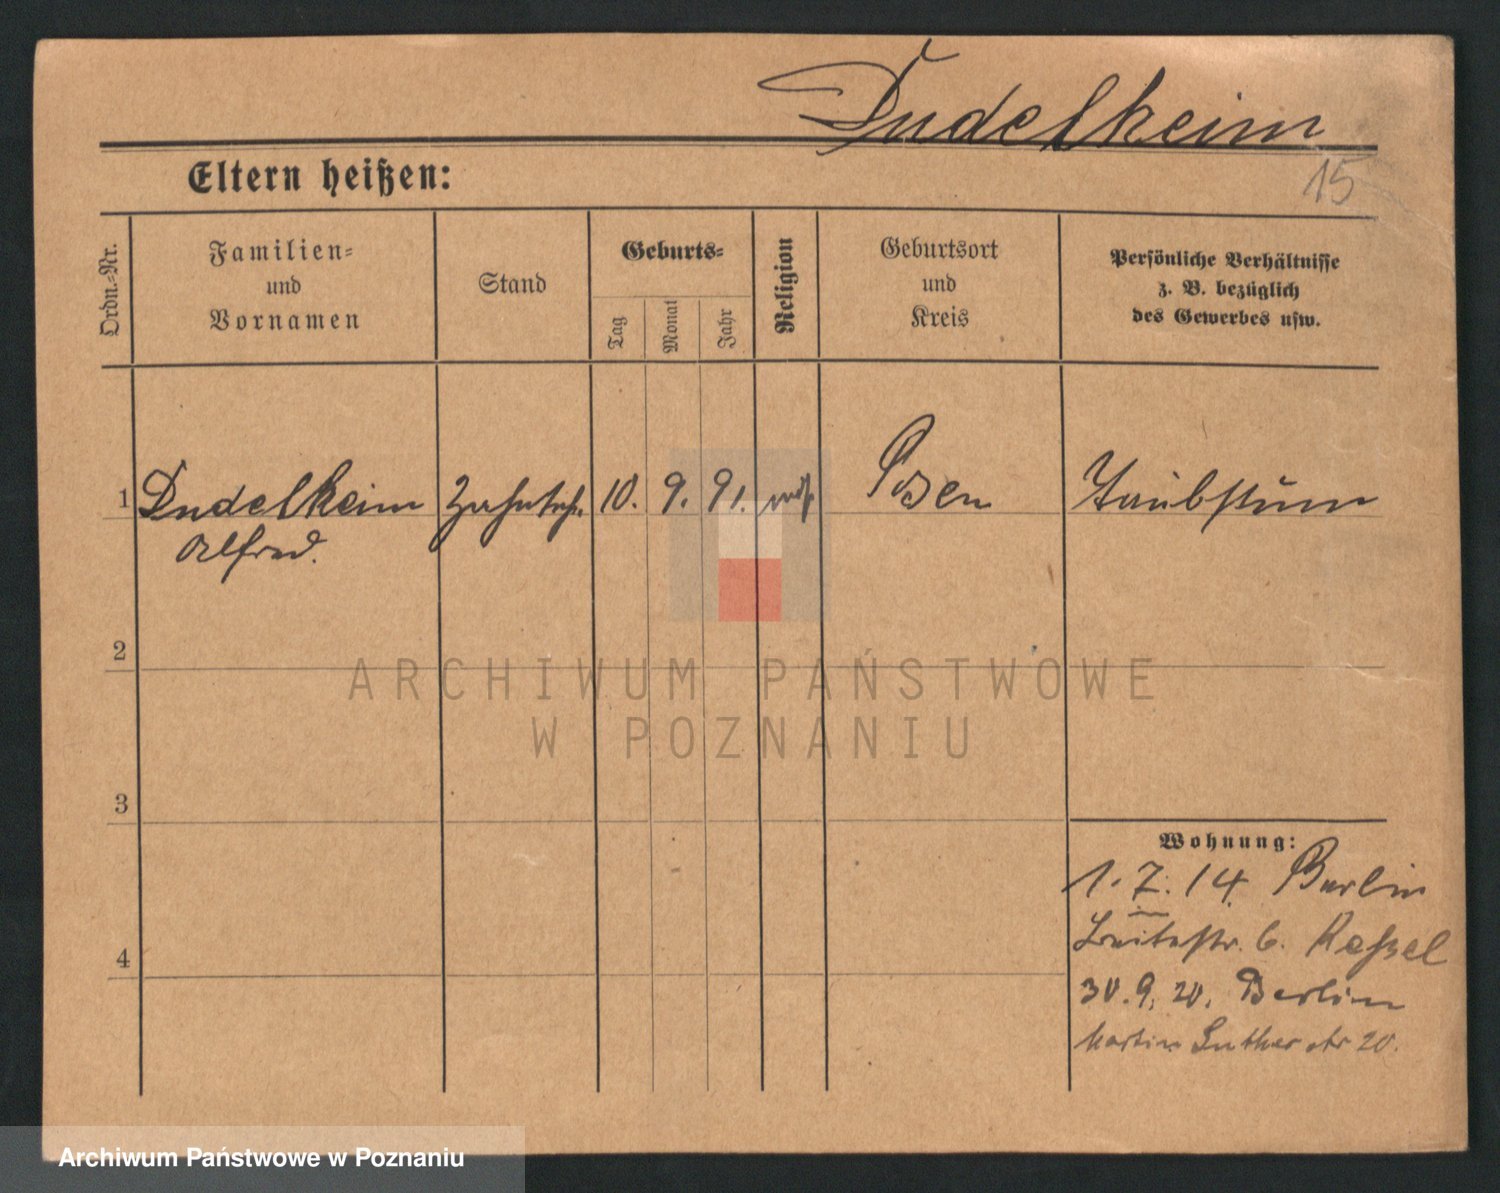 Dudelheim
15
Eltern heißen:
Ordn.=Nr.
Familien=
und
Vornamen
Stand
Geburts=
Tag
Monat
Jahr
Religion
Geburtsort
und
Kreis
Persönliche Verhältnisse
z. B. bezüglich
des Gewerbes usw.
1 Dudelheim 10. 9. 91. mos. Posen Taubstum
Alfred.
2
ARCHIWUM PAŃSTWOWE
W POZNANIU
3
Wohnung:
1. 7. 14 Berlin
6. Kessel
4
30. 9. 20. Berlin
Martin Luther str 20.
Archiwum Państwowe w Poznaniu